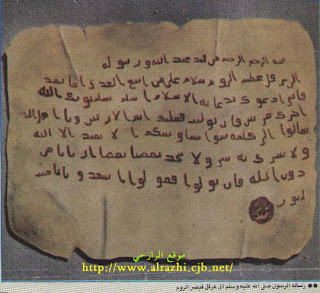 بسم الله الرحمن الرحيم من محمد عبد الله ورسوله
الى هرقل عظيم الروم سلام على من اتبع الهدى اما بعد
فانى ادعوك بدعاية الاسلام اسلم تسلم يوتك الله
اجرك مرتين فان توليت فعليك اثم الاريسين ويا اهل
تعالوا الى كلمة سوا بيننا وبينكم الا نعبد الا الله
ولا نشرك به شيا ولا يتخذ بعضنا بعضا اربابا من
دون الله فان تولوا فقولوا اشهدوا بانا مس
لمون
موقع الرازحي
http://www.alrazhi.cjb.net/
رسالة الرسول صلى الله عليه وسلم الى هرقل قيصر الروم